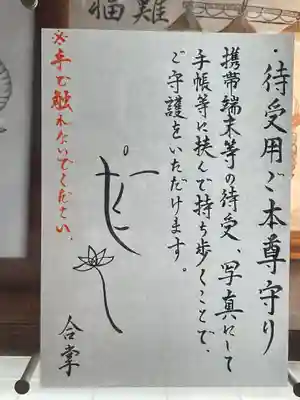 ・待受用ご本尊守り
携帯端末等の待受、写真にして
手帳等に挟んで持ち歩くことで、
ご守護をいただけます。
合掌
※手で触れないでください。